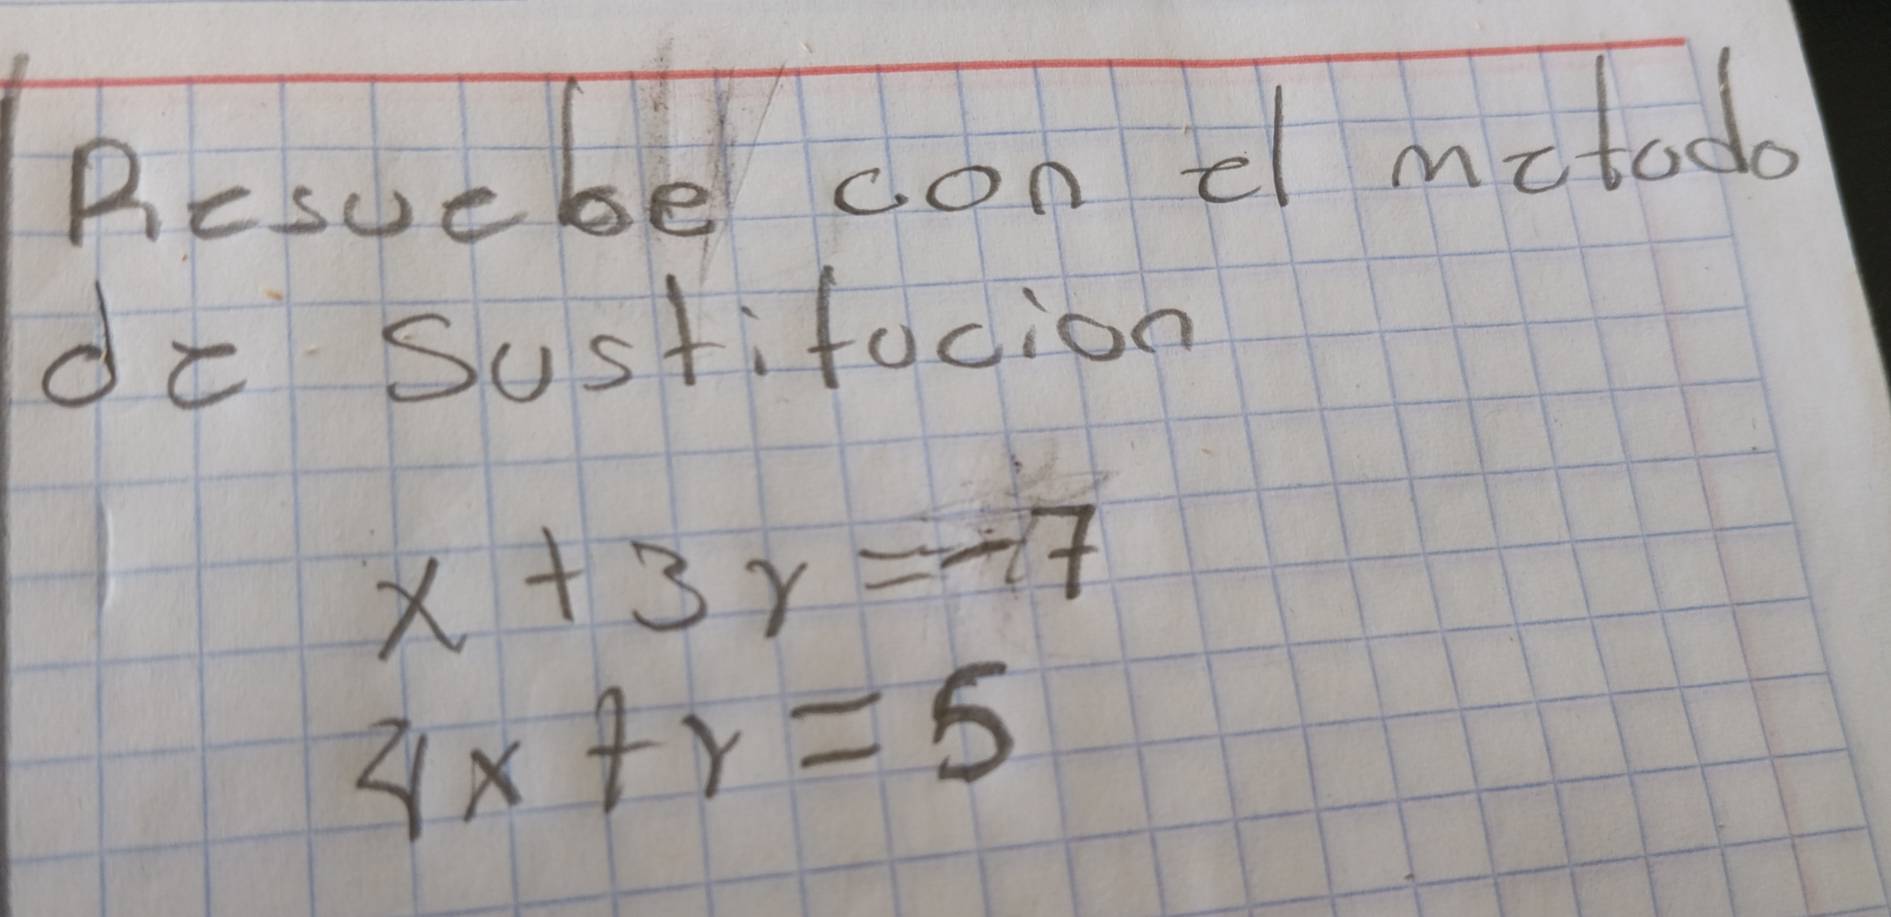 Resuebe con el metodo
de Sustitucion
x + 3y = -7
4x + y = 5